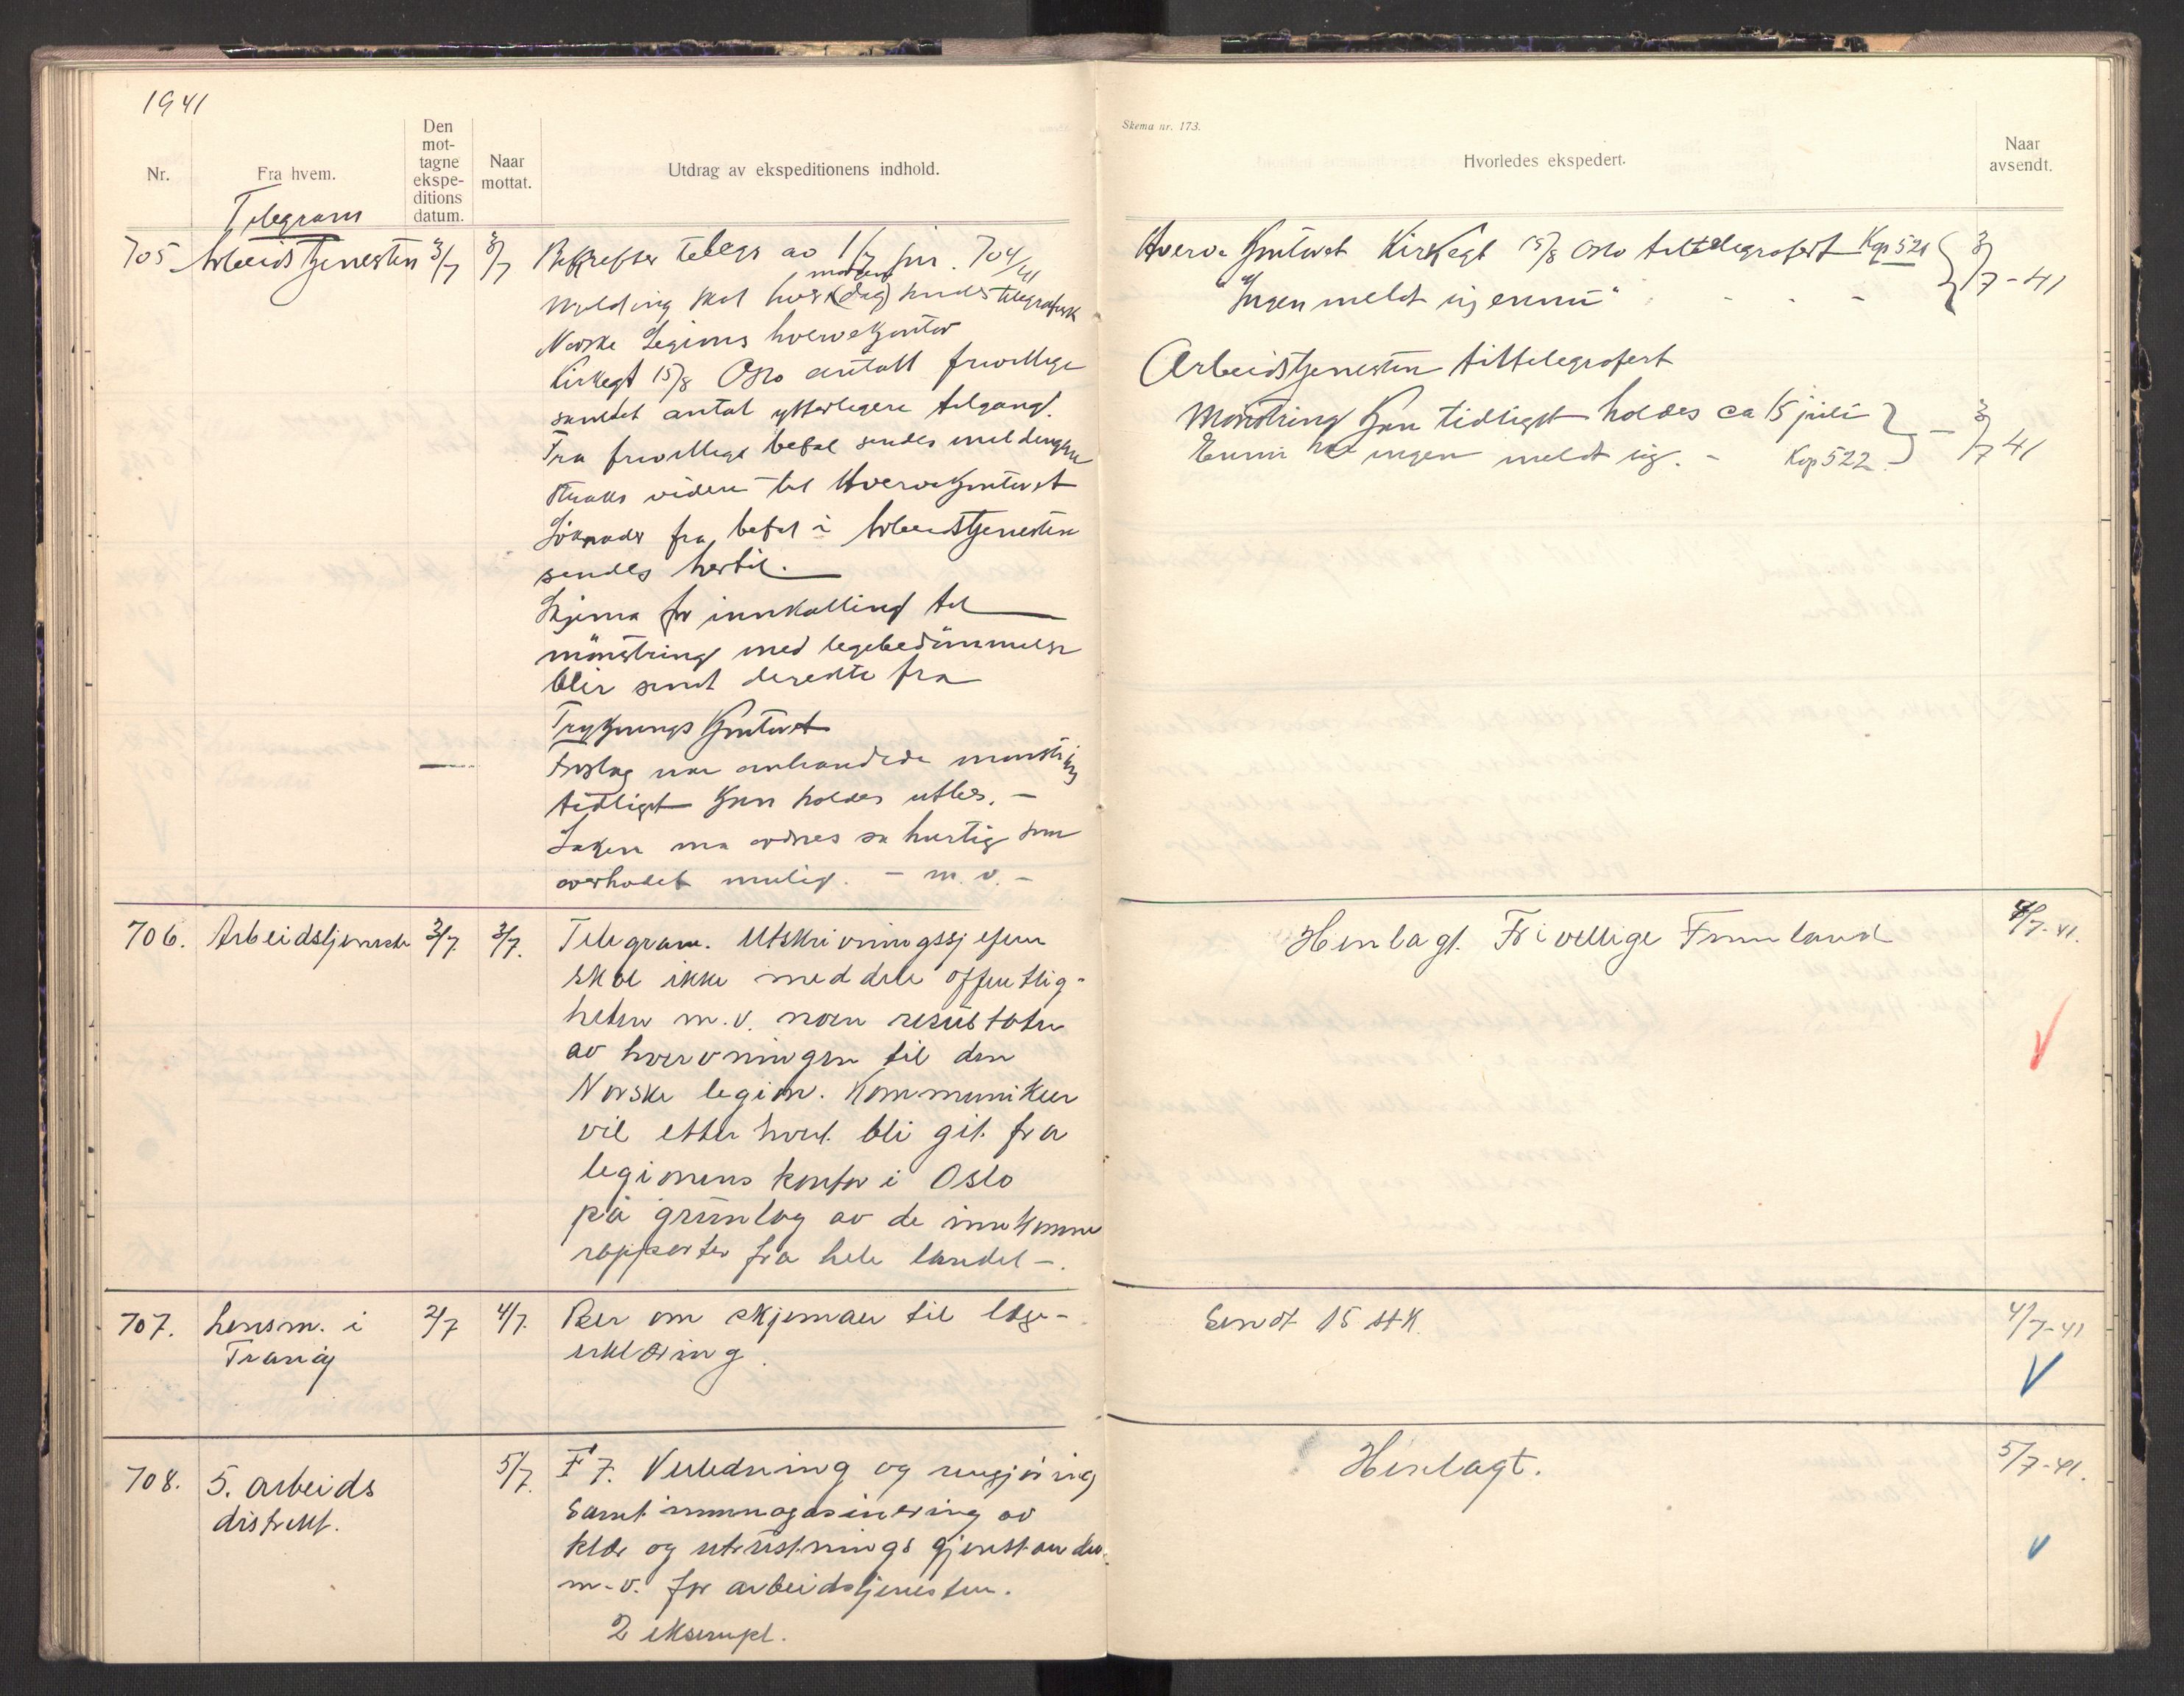 1941
Nr.
Fra hvem.
Den
mot-
tagne
ekspe-
ditions
datum.
Naar
mottat.
Utdrag av ekspeditionens indhold.
Telegram
705 Arbeidstjenesten 3/7 3/7 Bekrefter telegr av 1/7 jnr. 704/41
Melding skal hver (dag) sendes telegrafisk
Norske Legions hvervekontor
Kirkegt 15/8 Oslo antall frivillige
samlet antal ytterligere tilgang.
Fra frivillige befal sendes meldingene
straks videre til Hvervekontoret
Söknader fra befal i Arbeidstjenesten
sendes hertil.
Skjema for innkalling til
mönstring med legebedömmelse
blir sendt direkte fra
Trykningskontoret
Forslag når mönstring
tidligst kan holdes utbes. -
Saken må ordnes så hurtig som
overhodet mulig. - m. v. -
706. Arbeidstjenesten 3/7 3/7. Telegram. Utskrivningssjefen
skal ikke meddele offentlig-
heten m.v. noen resultater
av hvervningen til den
Norske legion. Kommunikeer
vil etter hvert bli git fra
legionens kontor i Oslo
på grunlag av de innkomne
rapporter fra hele landet -.
707. Lensm. i 2/7 4/7. Ber om skjemaer til læge-
Tranöy erklæring.
708. 5. arbeids 5/7. F 7. Veiledning og rengjöring
distrikt. samt innmagasinering av
klær og utrustningsgjenstander
m.v. for arbeidstjenesten.
2 eksempl.
Skema nr. 173.
Hvorledes ekspedert.
Naar
avsendt.
Hverve Kontoret Kirkegt 15/8 Oslo tiltelegrafert Kop 521 3/7-41
"Ingen meldt sig ennu"
Arbeidstjenesten tiltelegrafert
Mönstring kan tidligst holdes ca 15 juli
Ennu har ingen meldt sig. - Kop 522. - 3/7 41
Henlagt. Frivillige Finnland 4/7-41.
Sendt 15 stk. 4/7-41
Henlagt. 5/7-41.